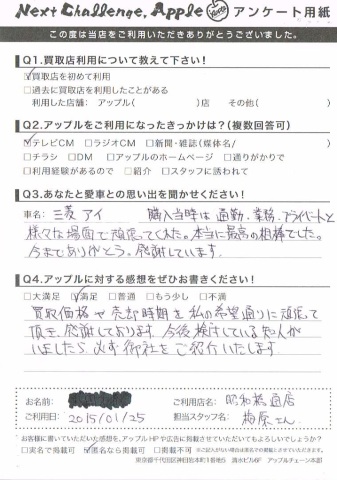 Next Challenge, Apple アンケート用紙
この度は当店をご利用いただきありがとうございました。
Q1.買取店利用について教えて下さい!
☑買取店を初めて利用
□過去に買取店を利用したことがある
利用した店舗: アップル( )店 その他( )
Q2.アップルをご利用になったきっかけは?(複数回答可)
☑テレビCM □ラジオCM □新聞・雑誌(媒体名/ )
□チラシ □DM □アップルのホームページ □通りがかりで
□利用経験があるので □紹介 □スタッフに誘われて
Q3.あなたと愛車との思い出を聞かせください!
車名: 三菱 アイ 購入当時は通勤、業務、プライベートと
様々な場面で頑張ってくれた。本当に最高の相棒でした。
今までありがとう。感謝しています。
Q4.アップルに対する感想をぜひお書きください!
□大満足 ☑満足 □普通 □もう少し □不満
買取価格や売却時期を私の希望通りに頑張って
頂き、感謝しております。今後検討している知人が
いましたら必ず御社をご紹介いたします
お名前: ご利用店名: 昭和橋通店
ご利用日: 2015/01/25 担当スタッフ名: 梅原さん
お客様に書いていただいた感想を、アップルHPや広告に掲載させていただいてもよろしいでしょうか?
□実名で掲載可 ☑匿名なら掲載可 □掲載不可 ※ご記入がない場合は実名での掲載とさせていただきます。
東京都千代田区神田佐久間町1番地 清水ビル6F アップルチェーン本部